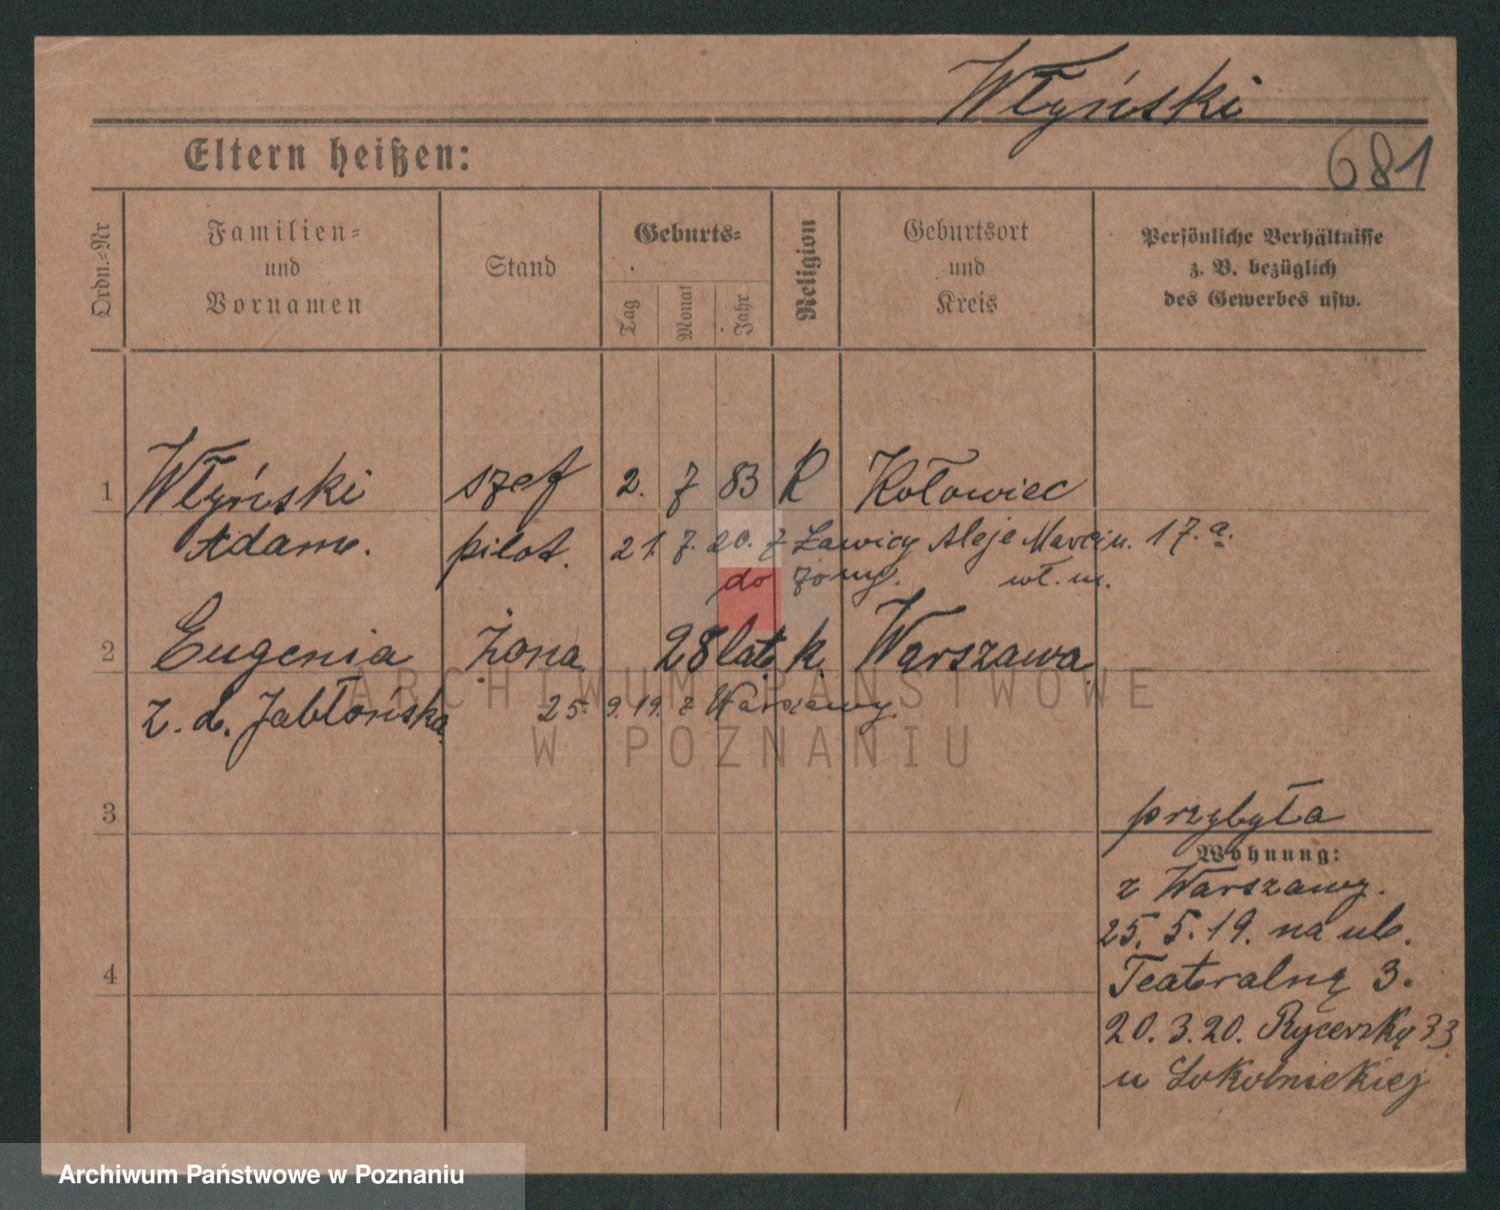 Włyński
681
Eltern heißen:
Ordn.-Nr
Familien-
und
Vornamen
Stand
Geburts-
Tag
Monat
Jahr
Religion
Geburtsort
und
Kreis
Persönliche Verhältnisse
z. B. bezüglich
des Gewerbes usw.
1 Włyński szef 2. 7 83 R Kołowiec
Adam. pilot. 21. 7. 20. z Ławicy Aleje Marcin. 17.a.
do żony. wł. m.
2 Eugenia żona 28 lat k. Warszawa
z. d. Jabłońska 25. 9. 19. z Warszawy.
ARCHIWUM PAŃSTWOWE
W POZNANIU
3
przybyła
Wohnung:
z Warszawy.
25. 5. 19. na ul.
4
Teatralną 3.
20. 3. 20. Rycerską 33
u Sokolnickiej
Archiwum Państwowe w Poznaniu